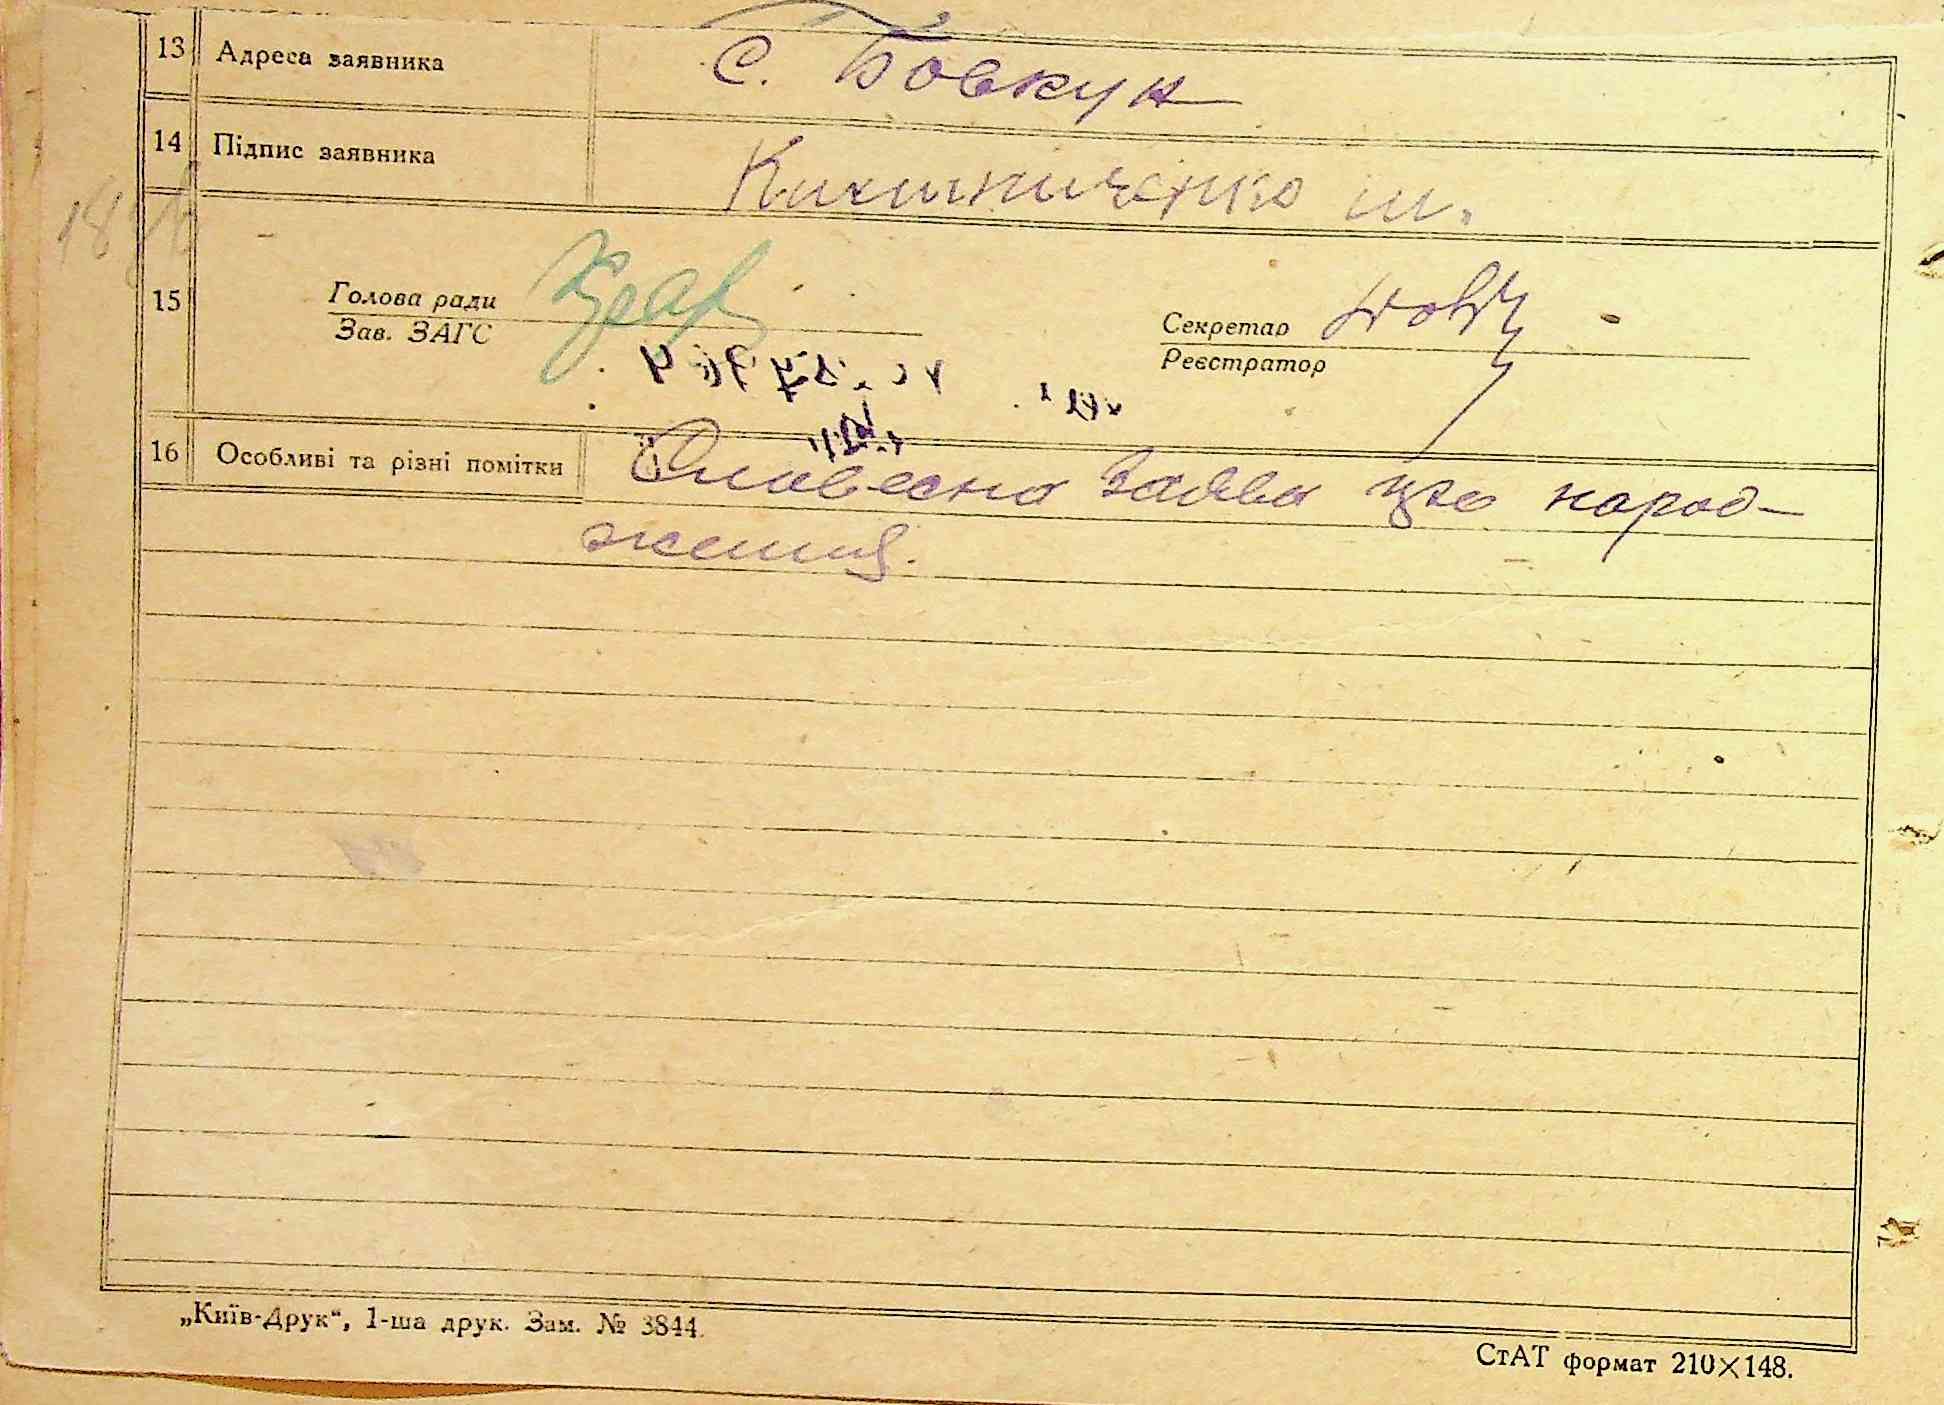 13 Адреса заявника с. Бовкун
14 Підпис заявника
15 Голова ради
Зав. ЗАГС
Секретар
Реєстратор
16 Особливі та різні помітки Словесна заява про народ-
ження.
„Київ-Друк“, 1-ша друк. Зам. № 3844.
СтАТ формат 210×148.